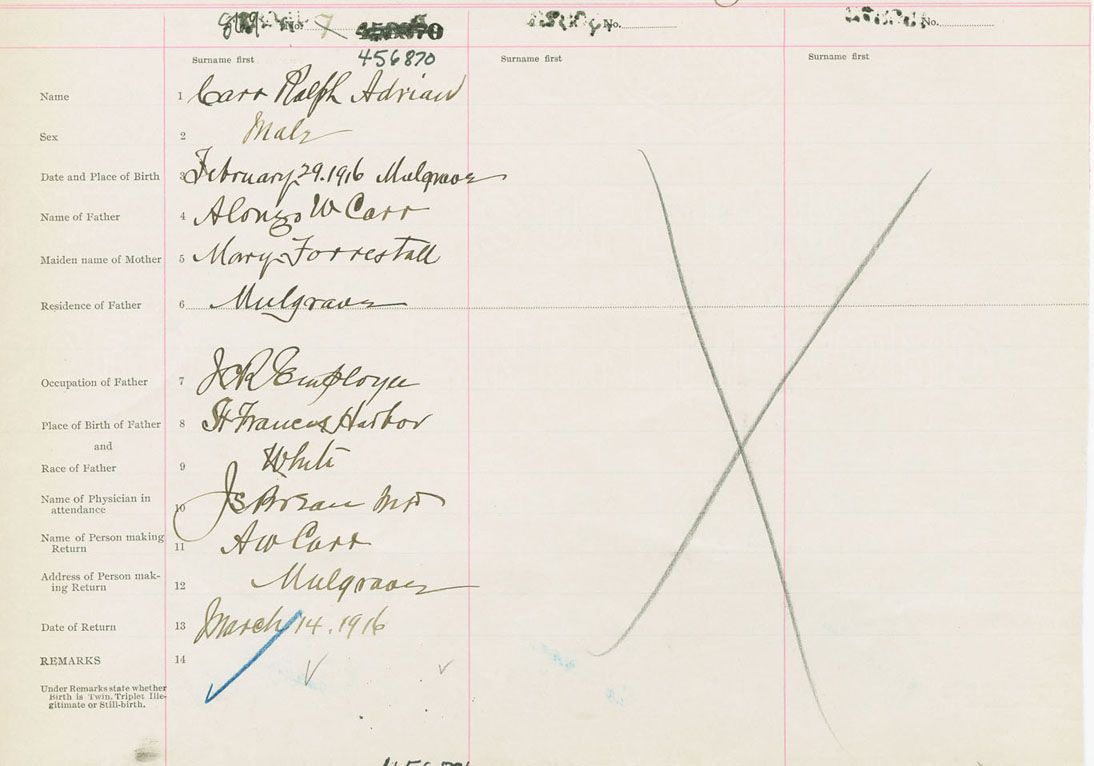 No. No. No.
456870
Surname first Surname first Surname first
Name 1 Carr Ralph Adrian
Sex 2 Male
Date and Place of Birth 3 February 29. 1916 Mulgrave
Name of Father 4 Alonzo W Carr
Maiden name of Mother 5 Mary Forrestall
Residence of Father 6 Mulgrave
Occupation of Father 7 Employee
Place of Birth of Father 8 St Francis Harbor
and
Race of Father 9 White
Name of Physician in
attendance 10 MD
Name of Person making
Return 11 A W Carr
Address of Person mak-
ing Return 12 Mulgrave
Date of Return 13 March 14. 1916
REMARKS 14
Under Remarks state whether
Birth is Twin, Triplet Ille-
gitimate or Still-birth.